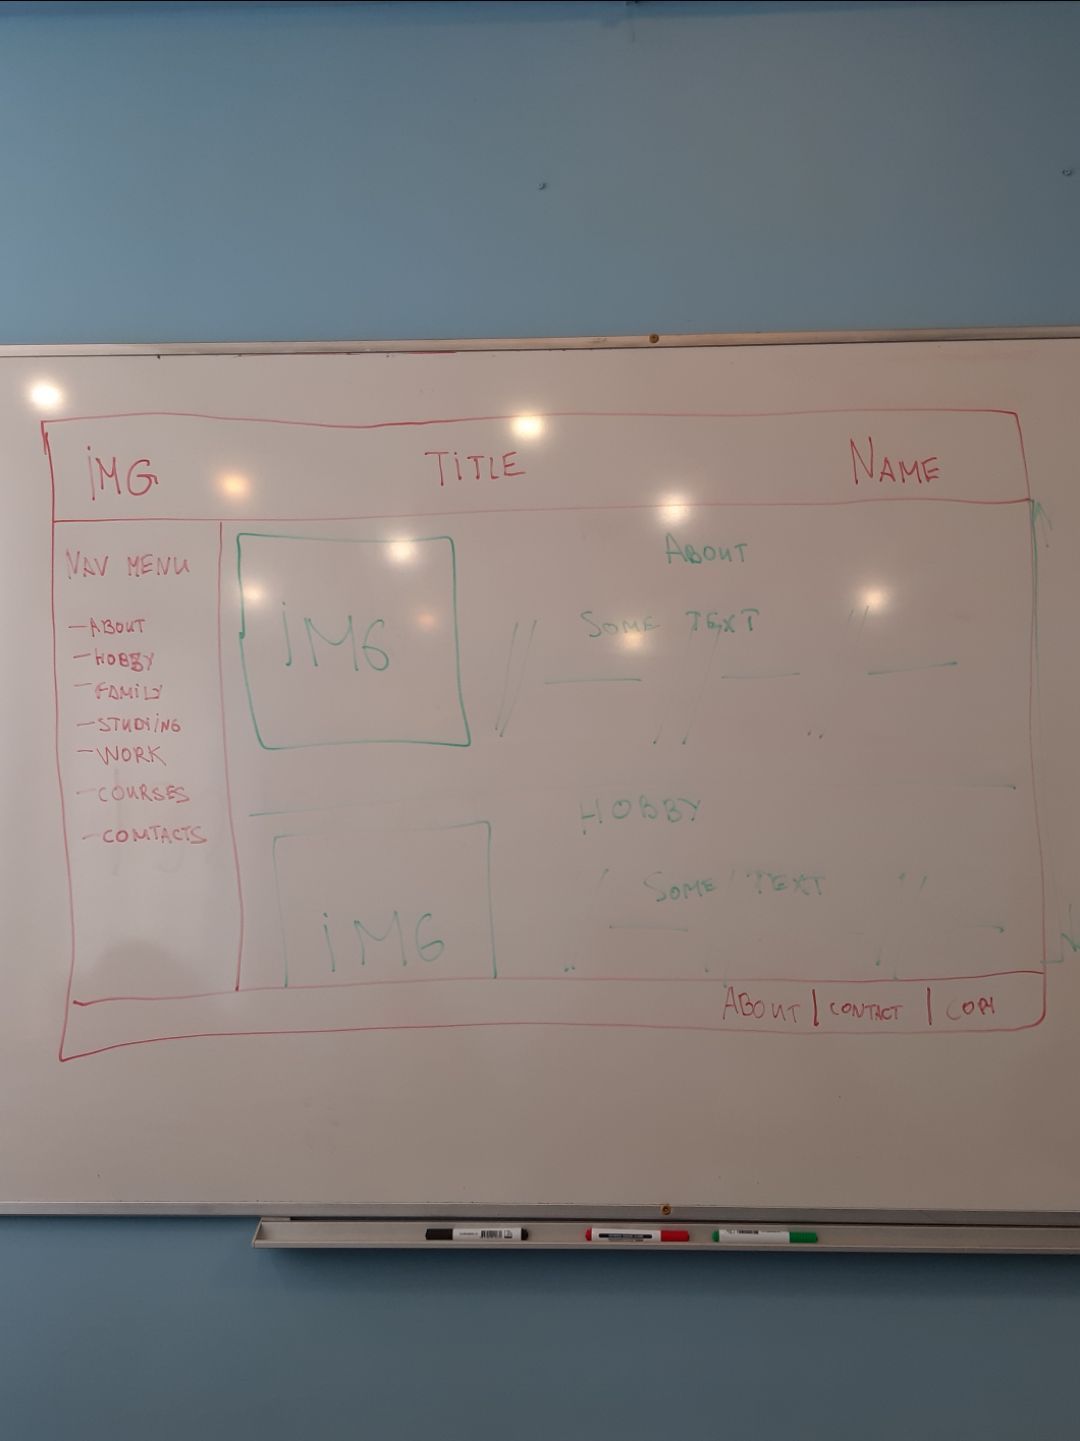 IMG TITLE NAME
NAV MENU
- ABOUT
- HOBBY
- FAMILY
- STUDYING
- WORK
- COURSES
- COMTACTS
IMG
ABOUT
SOME TEXT
HOBBY
SOME TEXT
IMG
ABOUT | CONTACT | COPY